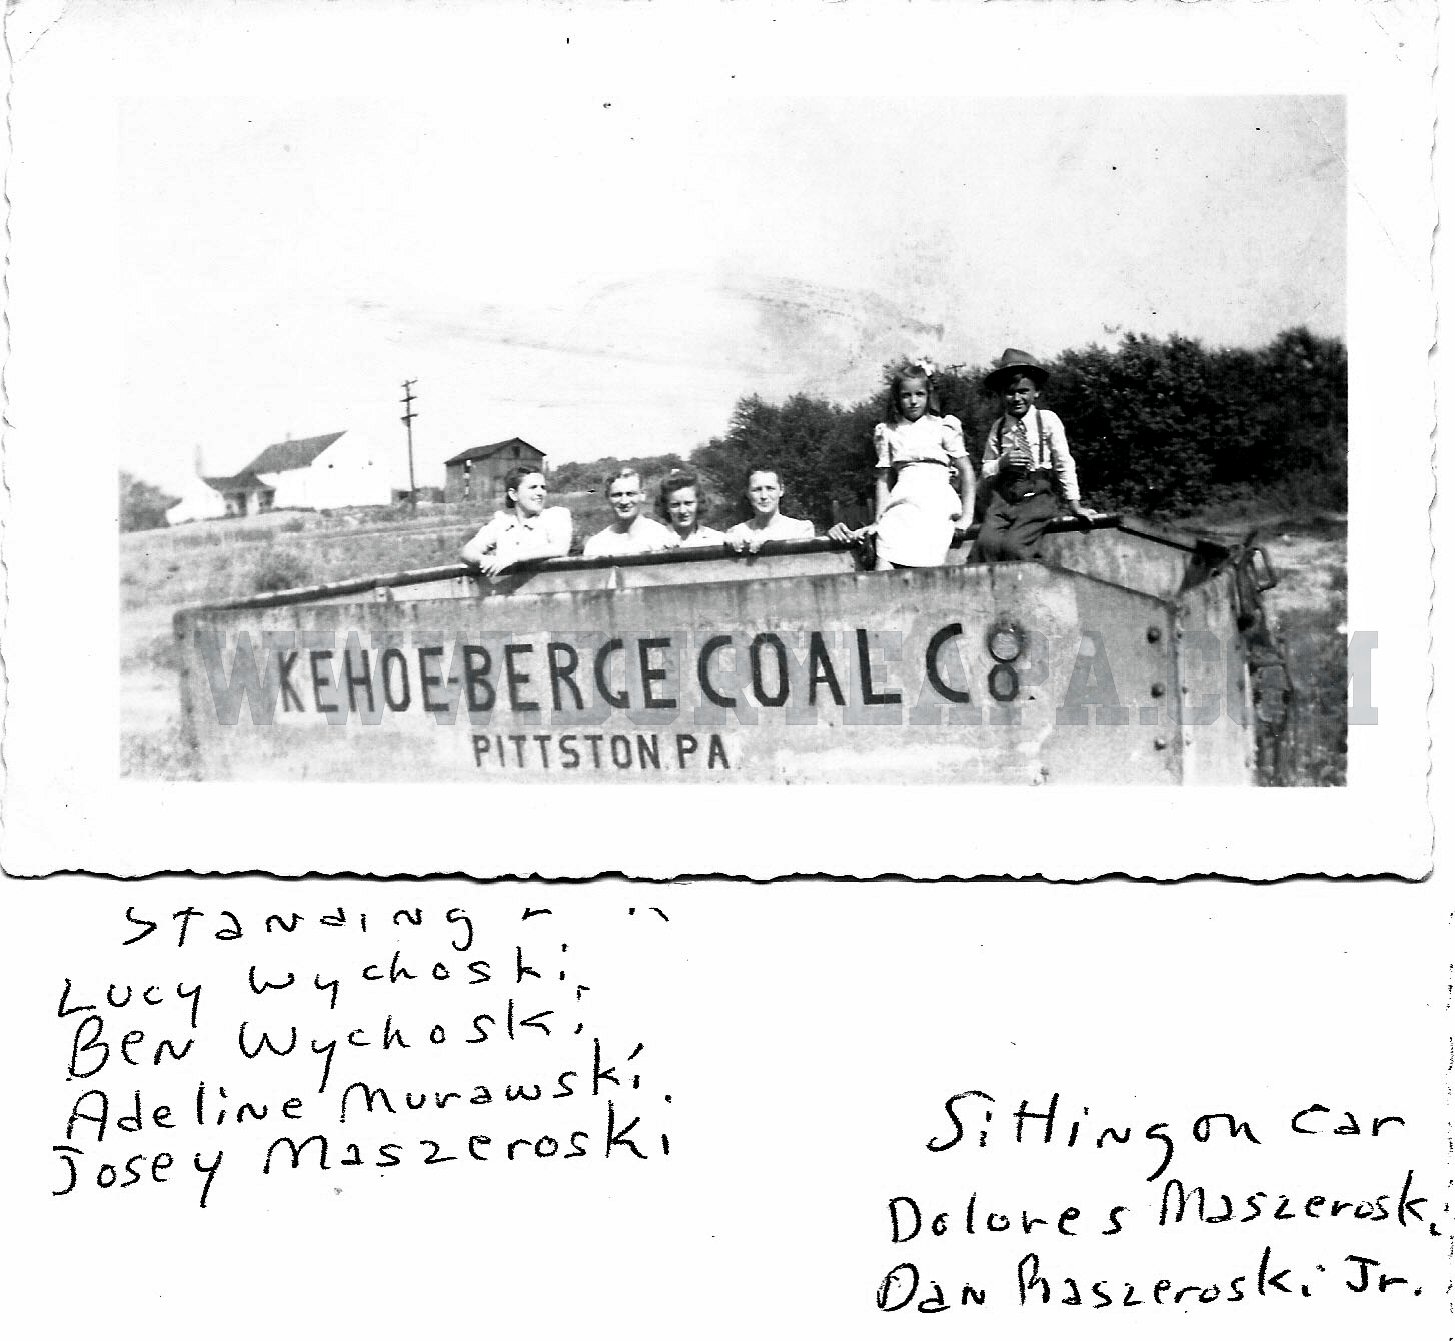 KEHOE-BERGE COAL Co
PITTSTON. PA.
WWW.DURYEAPA.COM
Standing
Lucy Wychoski
Ben Wychoski
Adeline Murawski
Josey Maszeroski
Sitting on car
Dolores Maszeroski
Dan Maszeroski Jr.